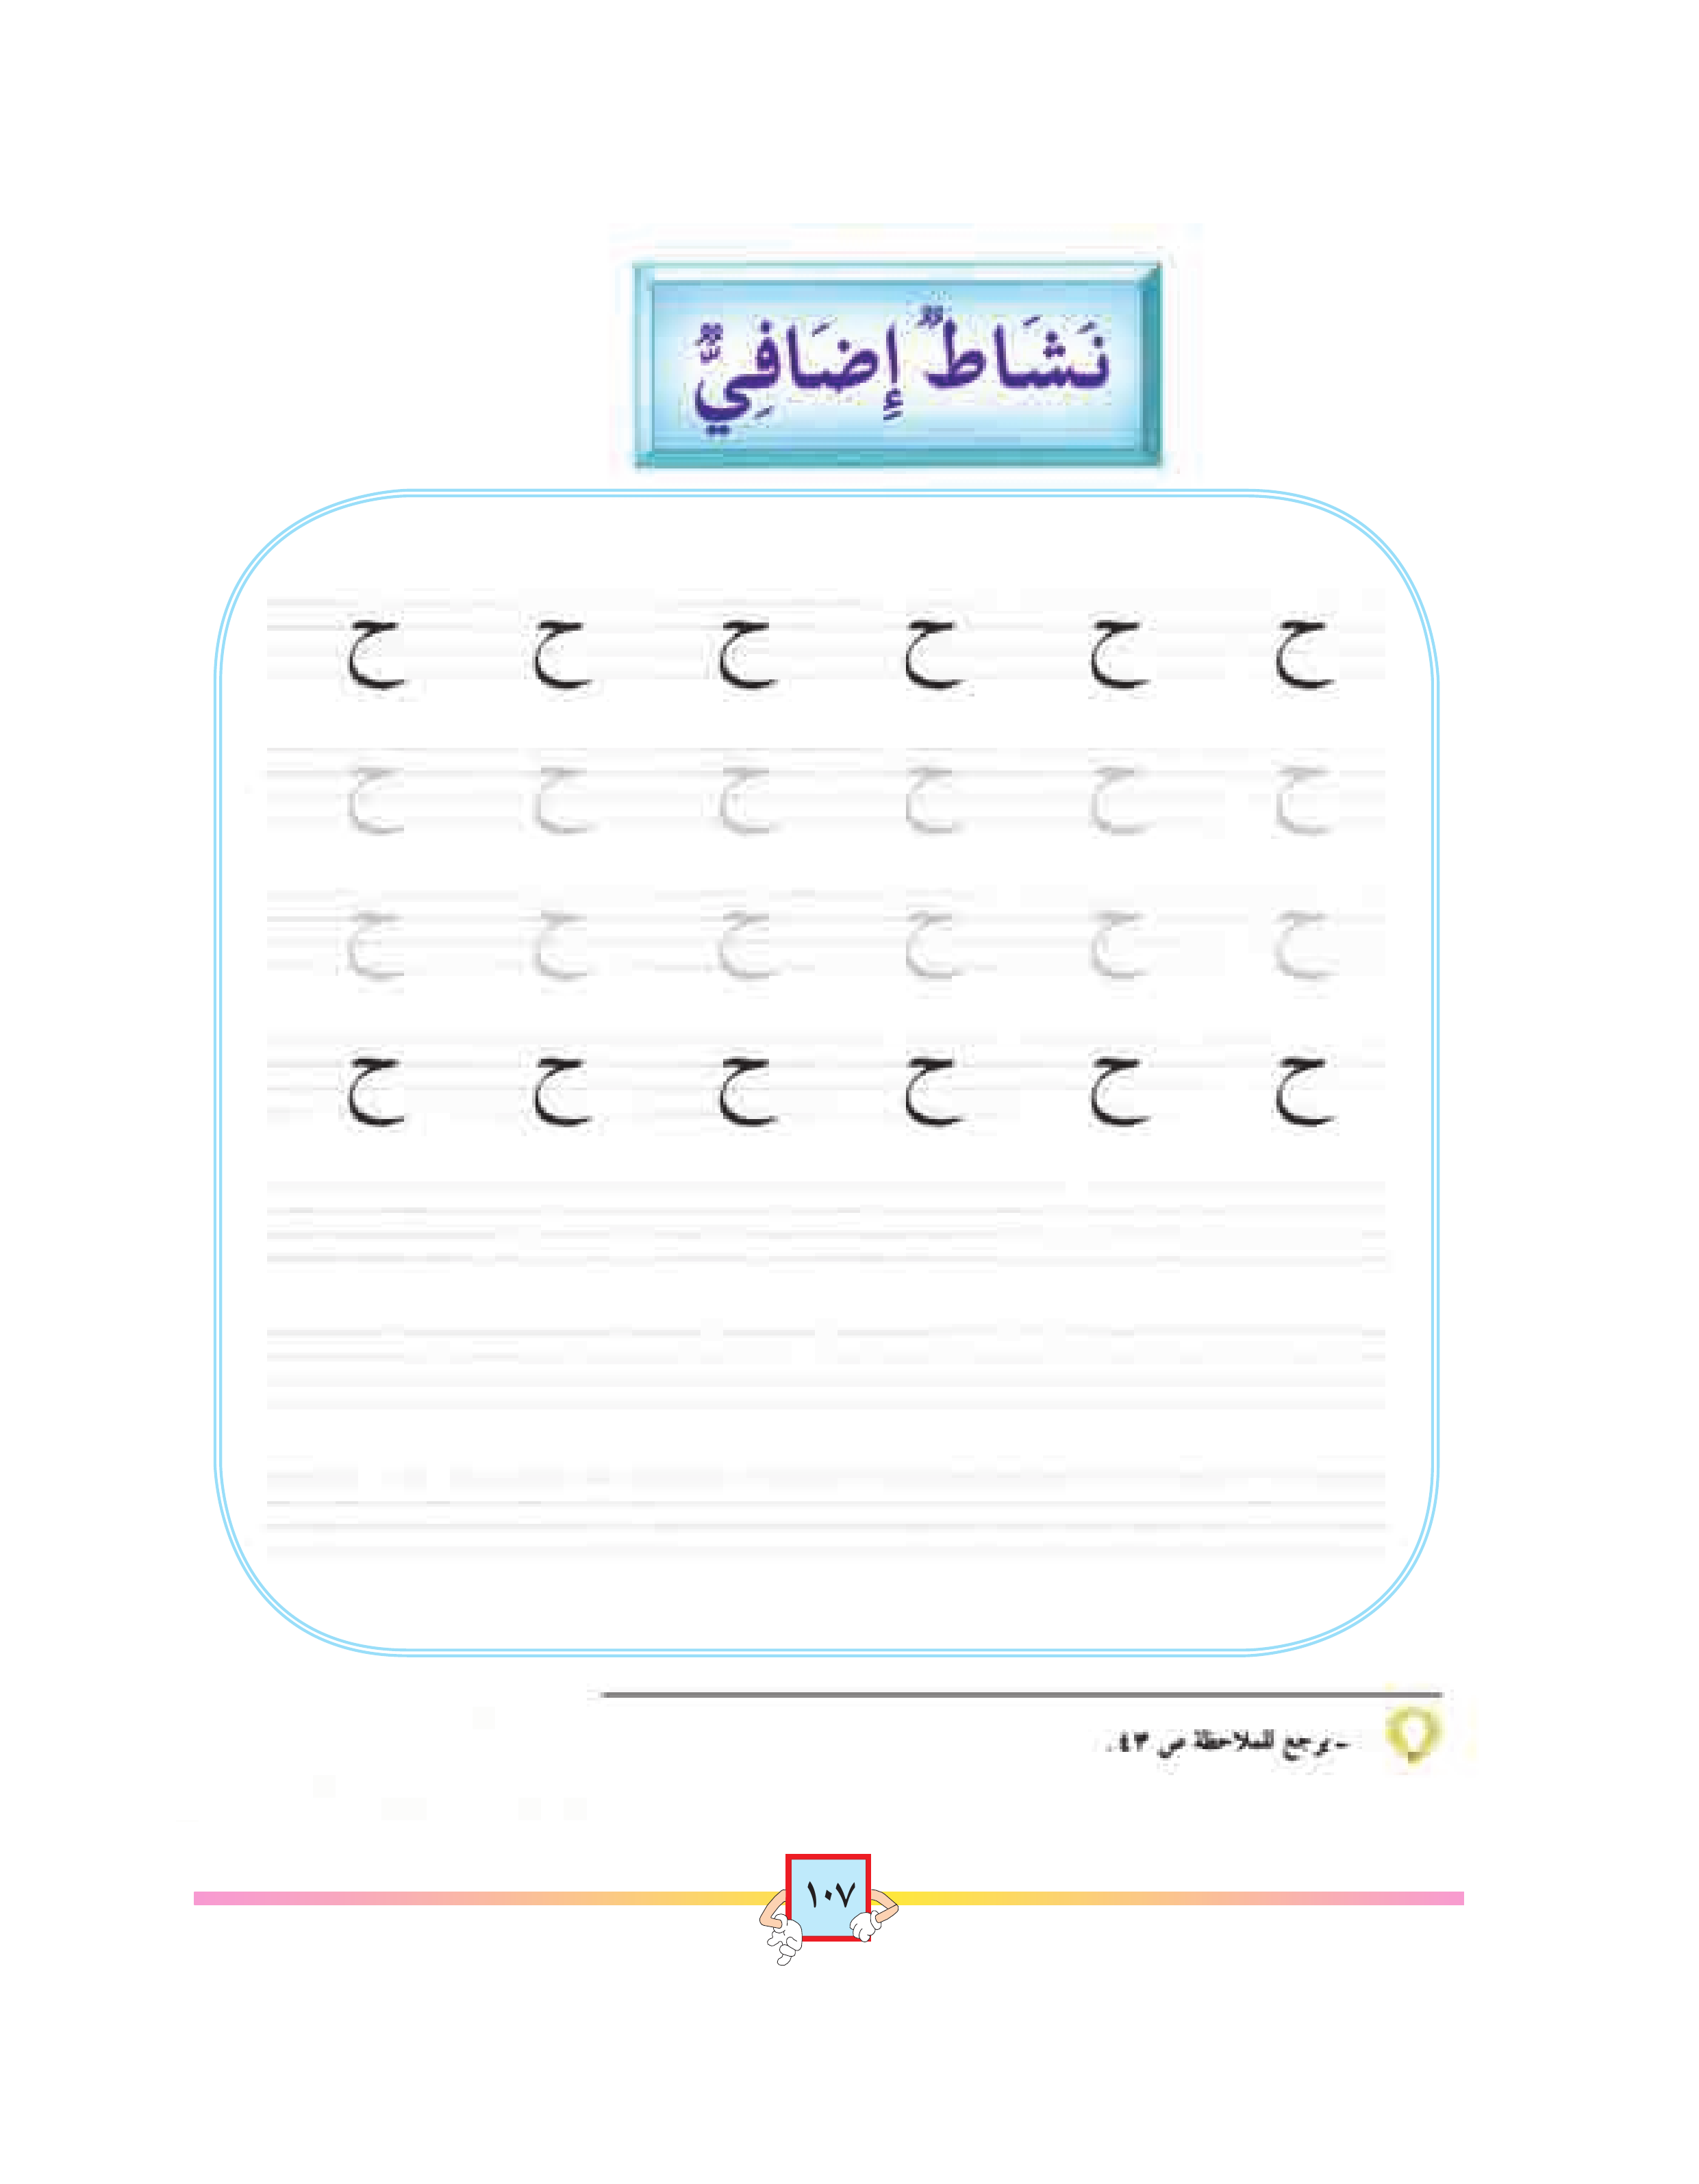 نَشَاطٌ إِضَافِيٌّ
ح ح ح ح ح ح
ح ح ح ح ح ح
ح ح ح ح ح ح
ح ح ح ح ح ح
- يرجع للملاحظة ص ٤٣.
١٠٧